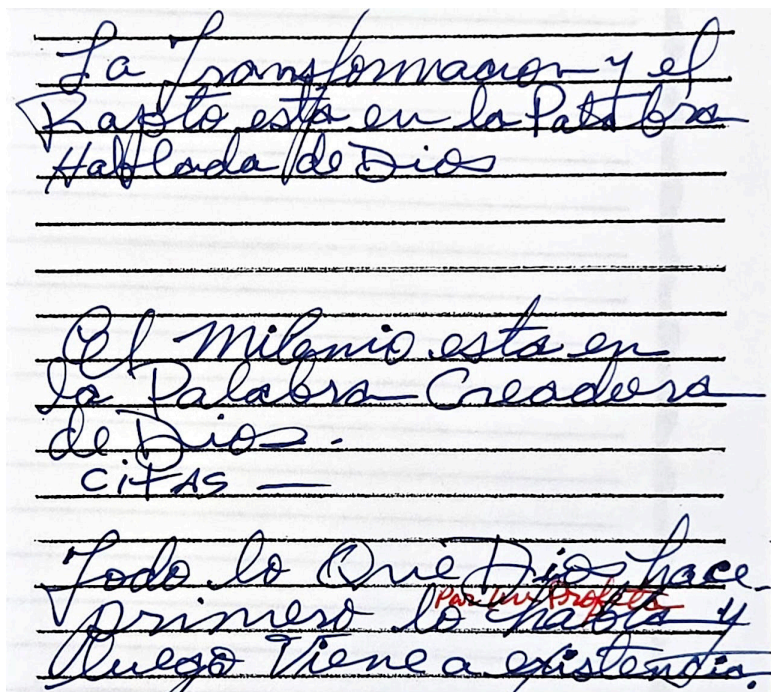 La Transformacion y el
Rapto esta en la Palabra
Hablada de Dios
El Milenio esta en
la Palabra Creadora
de Dios.
CITAS —
Todo lo Que Dios hace
por un Profeta
primero lo habla y
luego viene a existencia.